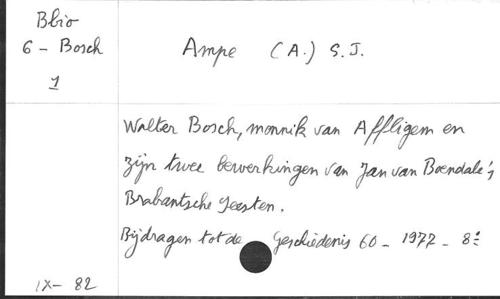 Bbio
6 - Bosch
1
Ampe (A.) S.J.
Walter Bosch, monnik van Affligem en
zijn twee bewerkingen van Jan van Boendale's
Brabantsche Yeesten.
Bijdragen tot de Geschiedenis 60 - 1977 - 8°
IX - 82